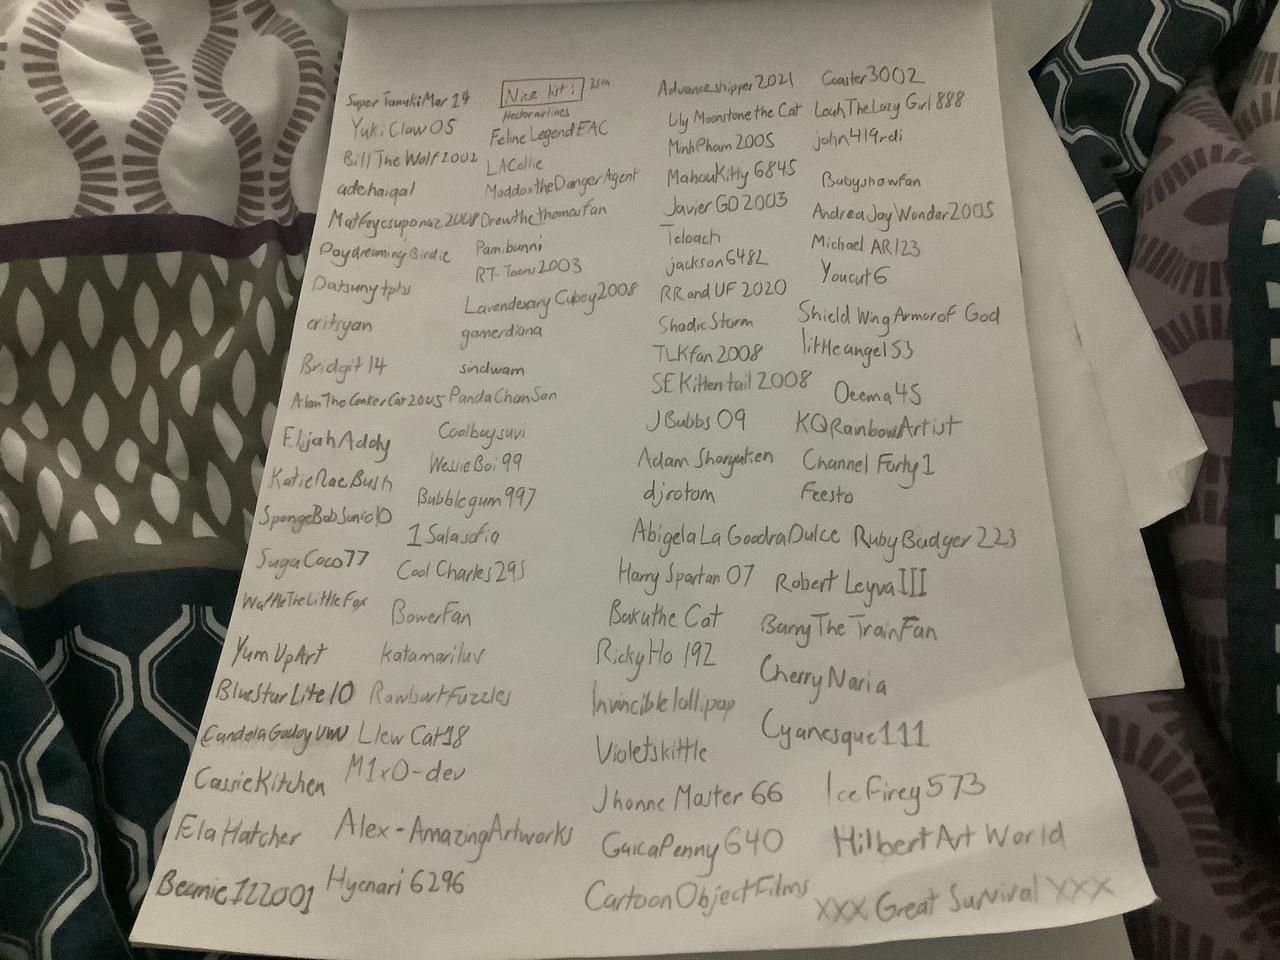 Nice list: 25th
SuperTanukiMar24
YukiClaw05
BillTheWolf2002
adehaiqal
Daydreaming Birdie
Datsunytphs
critsyan
Bridgit14
ElijahAddy
KatieRaeBush
SpongeBobSonic10
SugaCoco77
WaffleTheLittleFox
YumUpArt
BlueStarLite10
CandelaGodoyUWU
CassieKitchen
Ela Hatcher
Beanie122001
Hectorairlines
Feline Legend EAC
LACollie
MaddoxtheDangerAgent
Drewthethomasfan
Pamibunni
RT-Toons2003
gamerdiana
sindwam
PandaChanSan
Coolboysuvi
WessieBoi99
Bubblegum997
1Salasofia
Cool Charles295
BowerFan
katamariluv
RawburtFuzzles
Llew Cat18
M1x0-dev
Alex-AmazingArtworks
Hyenari6296
Advanceshipper2021
Lily Moonstone the Cat
MinhPham2005
MahouKitty6845
JavierGO2003
Teloach
jackson6482
RRandUF2020
Shadic Storm
TLKfan2008
SEKittentail2008
JBubbs09
Adam Shoryuken
djrotom
Abigela La GoodraDulce
Harry Spartan 07
Bakuthe Cat
RickyHo192
Invinciblelollipop
Violetskittle
Jhonne Master 66
GaicaPenny640
CartoonObjectFilms
Coaster3002
LeahTheLazy Girl888
john419rdi
Babyshowfan
AndreaJoyWonder2005
Michael AR123
Youcut6
Shield Wing Armor of God
littleangel53
Oeema45
KQRainbowArtist
Channel Forty1
Feesto
RubyBadger223
Robert Leyva III
BarryTheTrainFan
CherryNaria
Cyanesque111
IceFirey573
HilbertArt World
XXX Great Survival XXX